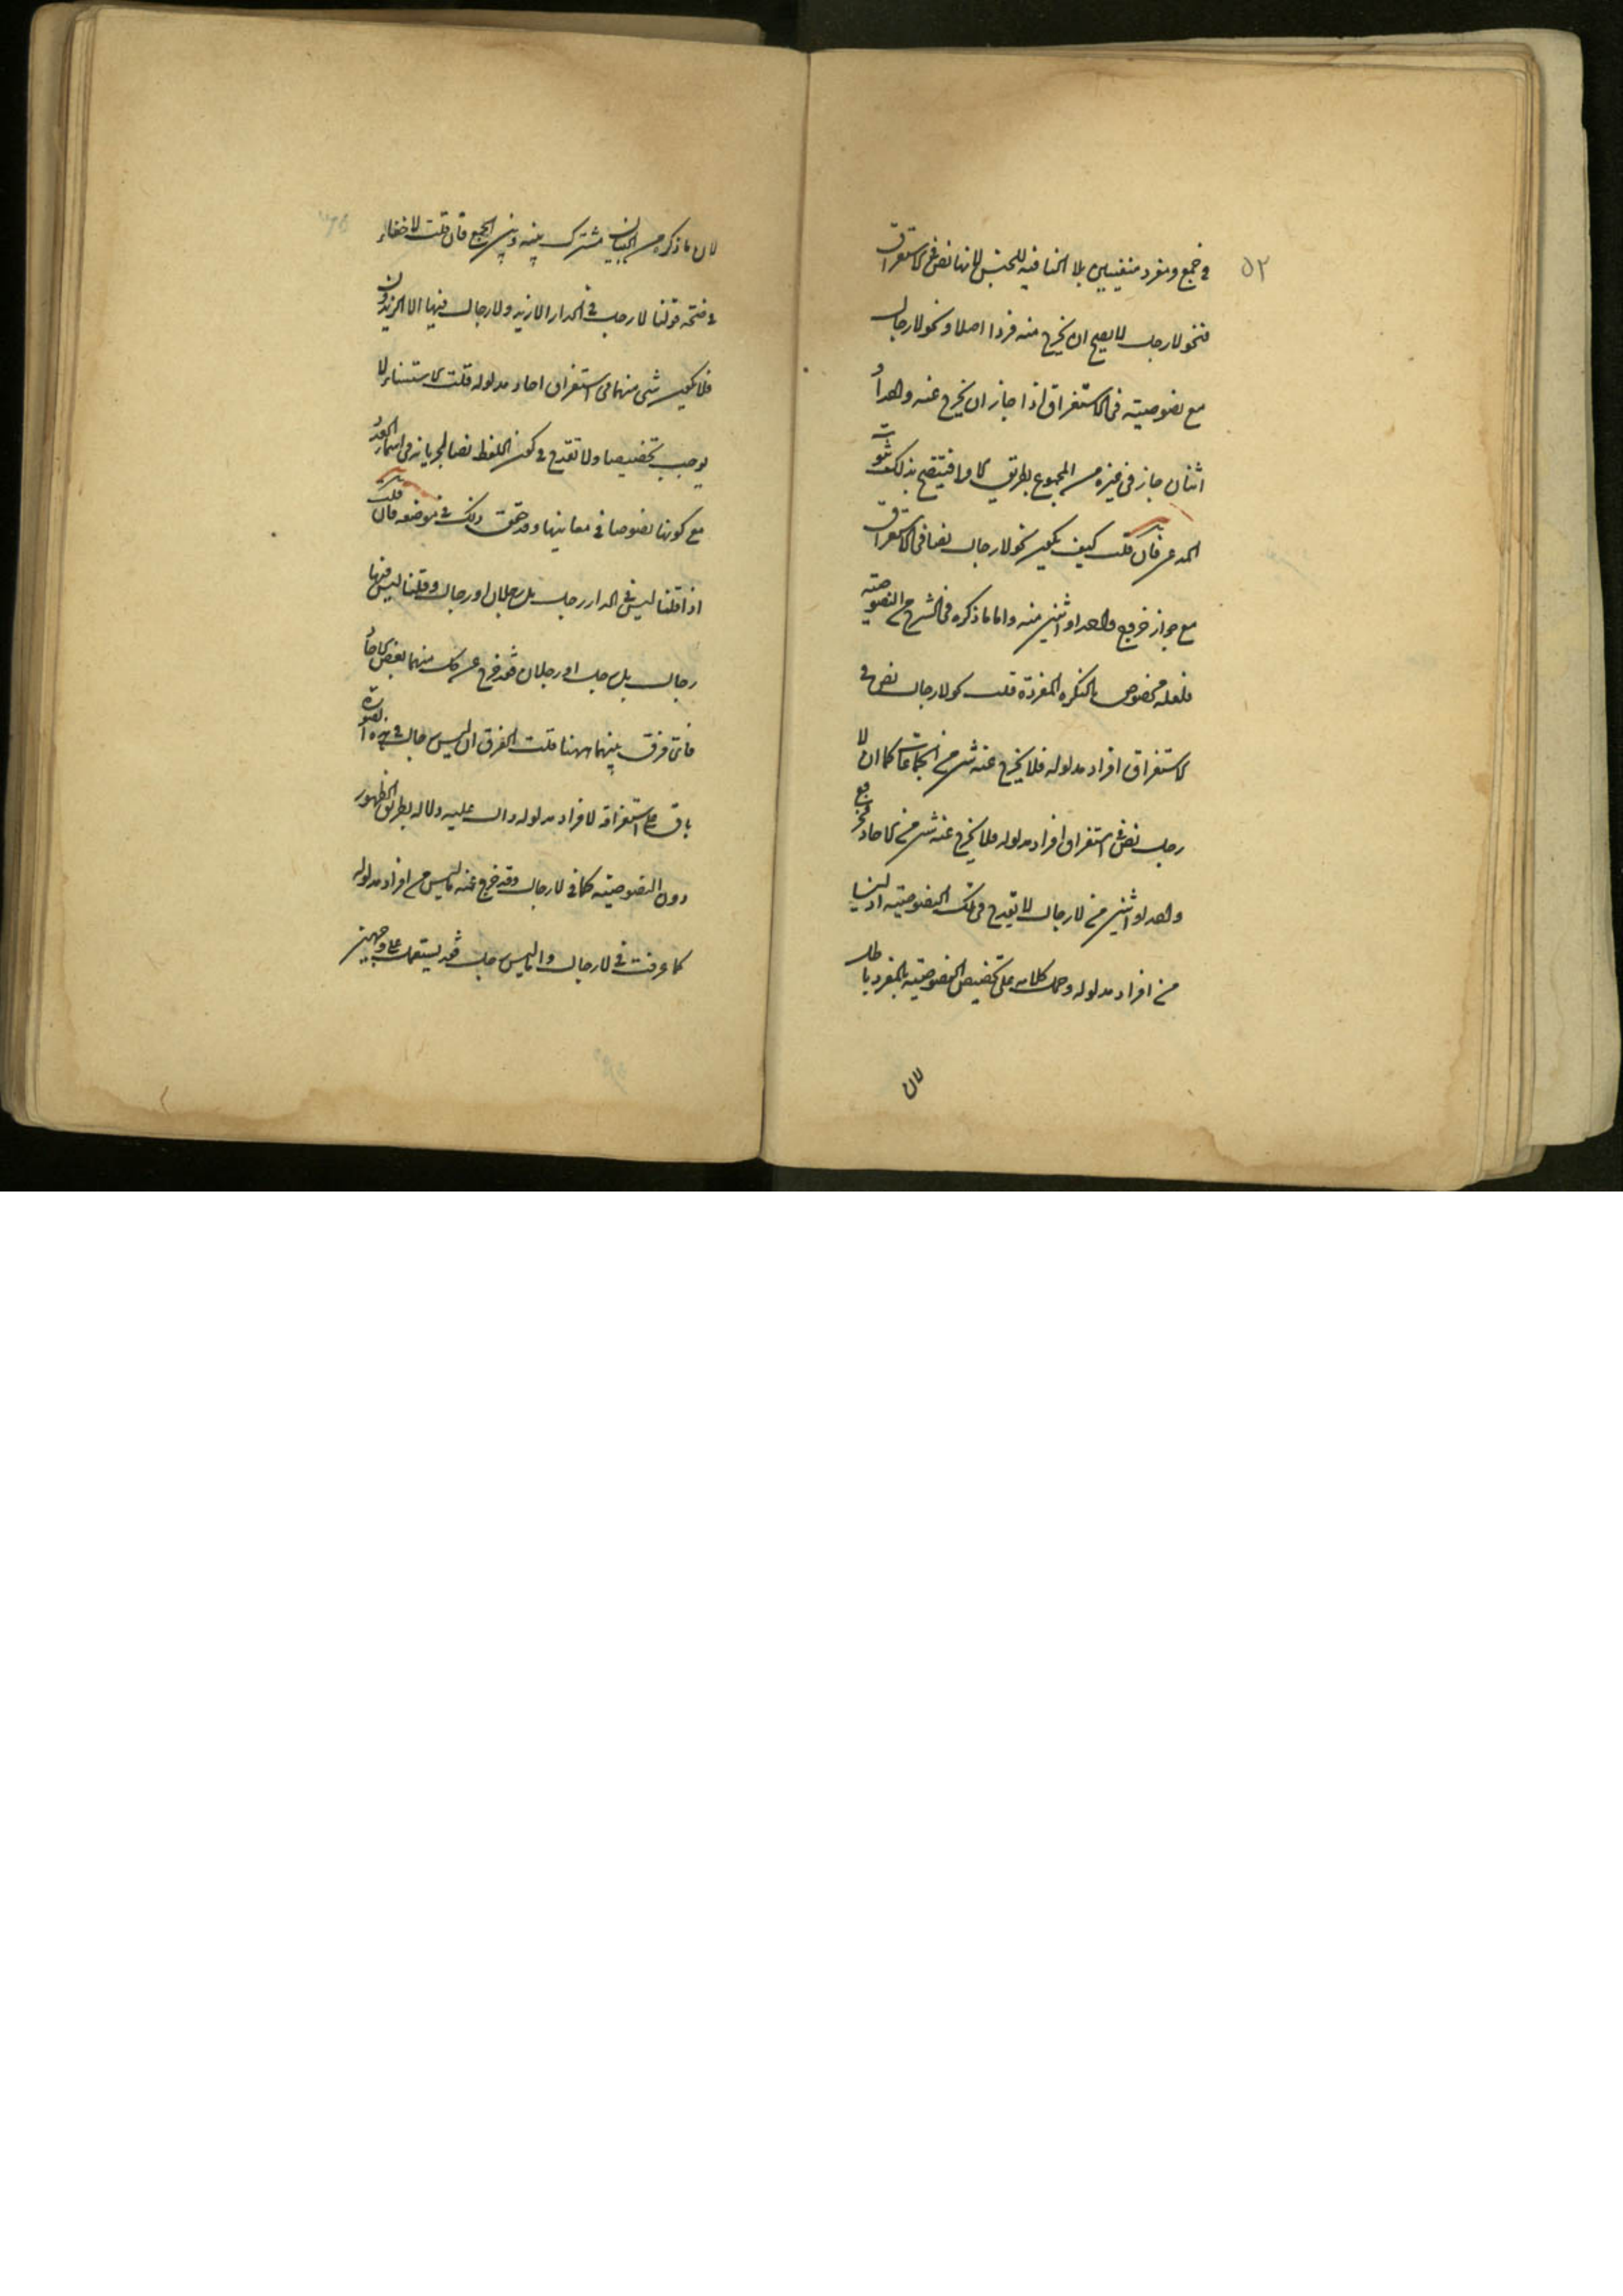 ٥٢
في جمع ومفرد منفيين بلا النافيه للجنس لانها نص في الاستغراق
فنحو لا رجل لا يصح ان يخرج منه فردا اصلا ونحو لا رجال
مع نصوصيته في الاستغراق اذا جاز ان يخرج عنه واحد أو
اثنان جاز في غيره من الجموع بطريق الاولى فيتضح بذلك ثبوت
المدعى فان قلت كيف يكون نحو لا رجال نصا في الاستغراق
مع جواز خروج واحد او اثنين منه واما ما ذكره في الشرح من النصوصيته
فلعله مخصوص بالنكره المفردة قلت نحو لا رجال نص في
الاستغراق افراد مدلوله فلا يخرج عنه شئ من الجماعات كما ان لا
رجل نص في استغراق افراد مدلوله فلا يخرج عنه شئ من الاحاد فخروج
واحد او اثنين من لا رجال لا يقدح في تلك النصوصيته اذ ليسا
من افراد مدلوله وحمل كلامه على تخصيص النصوصيته بالمفرد باطل
لان
لان ما ذكره من البيان مشترك بينه وبين الجمع فان قلت لا خفاء
في صحة قولنا لا رجل في الدار الا زيد ولا رجال فيها الا الزيدون
فلا يكون شئ منهما في استغراق احاد مدلوله قلت الاستثناء لا
يوجب تخصيصا ولا تقدح في كون اللفظ نصا لجريانه في اسماء العدد
مع كونها نصوصا في معانيها وقد حقق ذلك في موضعه فان قلت
اذا قلنا ليس في الدار رجل بل رجلان او رجال وقلنا ليس فيها
رجال بل رجل او رجلان فقد خرج عن كل منهما بعض الاحاد
فاي فرق بينهما ههنا قلت الفرق ان ليس رجال في هذه الصورة
باق على استغراقه لافراد مدلوله دال عليه دلاله بطريق الظهور
دون النصوصيته كما في لا رجال وقد خرج عنه ما ليس من افراد مدلوله
كما عرفت في لا رجال واما ليس رجل فقد يستعمل على وجهين